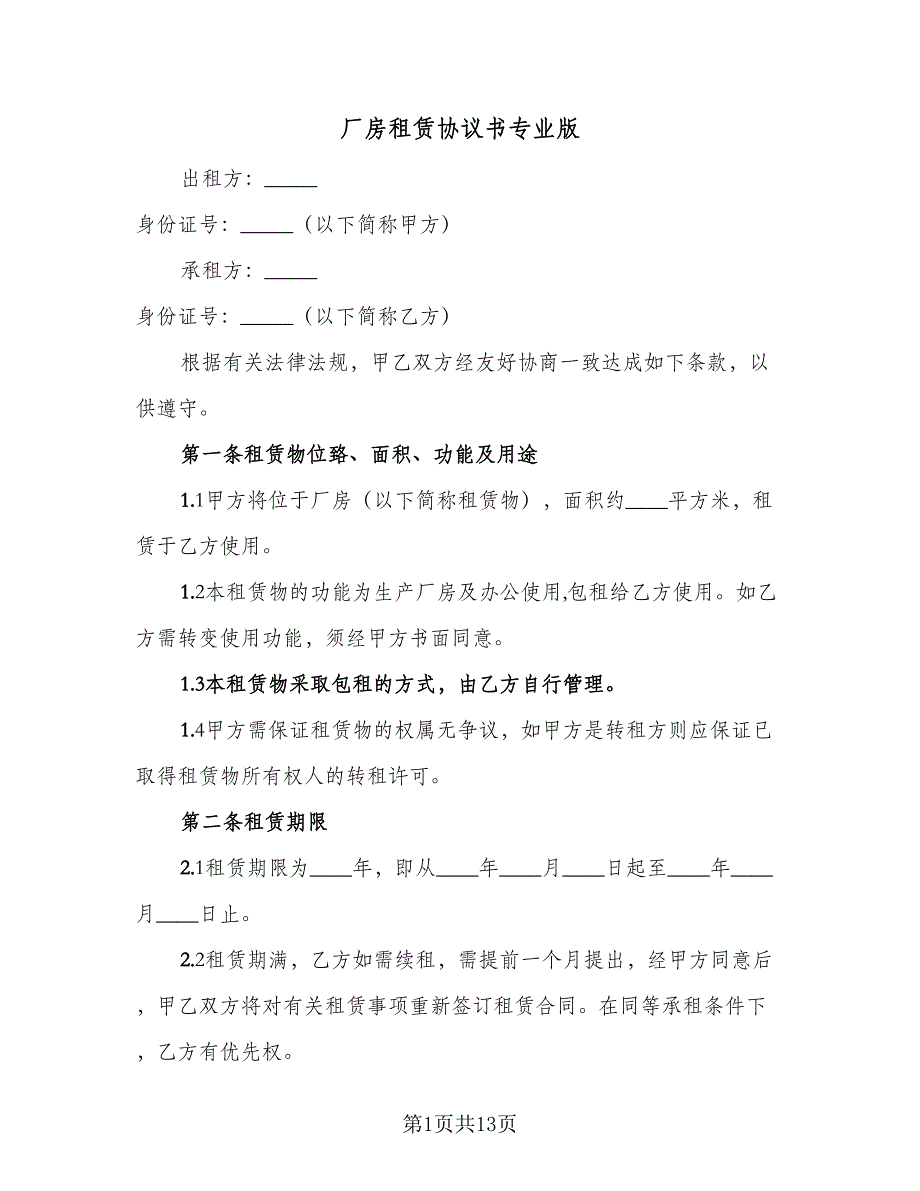 厂房租赁协议书专业版
出租方：_____
身份证号：_____（以下简称甲方）
承租方：_____
身份证号：_____（以下简称乙方）
根据有关法律法规，甲乙双方经友好协商一致达成如下条款，以
供遵守。
第一条租赁物位臵、面积、功能及用途
1.1甲方将位于厂房（以下简称租赁物），面积约____平方米，租
赁于乙方使用。
1.2本租赁物的功能为生产厂房及办公使用,包租给乙方使用。如乙
方需转变使用功能，须经甲方书面同意。
1.3本租赁物采取包租的方式，由乙方自行管理。
1.4甲方需保证租赁物的权属无争议，如甲方是转租方则应保证已
取得租赁物所有权人的转租许可。
第二条租赁期限
2.1租赁期限为____年，即从____年____月____日起至____年____
月____日止。
2.2租赁期满，乙方如需续租，需提前一个月提出，经甲方同意后
，甲乙双方将对有关租赁事项重新签订租赁合同。在同等承租条件下
，乙方有优先权。
第1页共13页